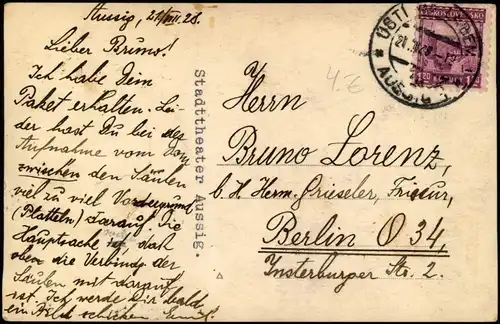 Aussig, 21/VII. 28.
Lieber Bruno!
Ich habe Dein
Paket erhalten. Lei-
der hast Du bei der
Aufnahme vom Dom
zwischen den Säulen
viel zu viel Vordergrund
(Platteln) darauf. Die
Hauptsache ist daß
oben die Verbindg der
Säulen mit darauf
ist. Ich werde Dir bald
ein Bild schicken
Stadttheater Aussig.
Herrn
Bruno Lorenz,
b. H. Herm. Grieseler, Friseur,
Berlin O 34,
Insterburger Str. 2.
4.-
ÚSTÍ
AUSSIG
ČESKOSLOVENSKO
1.20